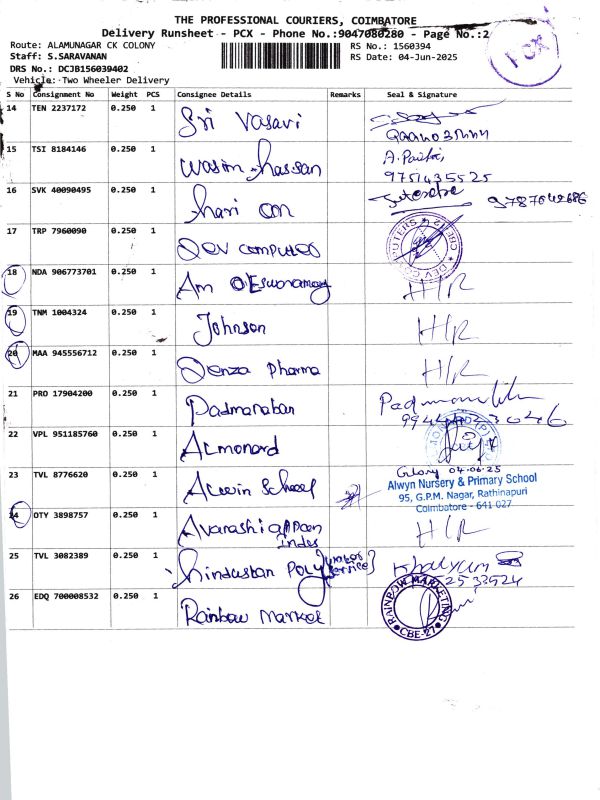 THE PROFESSIONAL COURIERS, COIMBATORE
Delivery Runsheet - PCX - Phone No.:9047080280 - Page No.:2
Route: ALAMUNAGAR CK COLONY
RS No.: 1560394
Staff: S.SARAVANAN
RS Date: 04-Jun-2025
DRS No.: DCJB156039402
Vehicle: Two Wheeler Delivery
PCX
S No Consignment No Weight PCS Consignee Details Remarks Seal & Signature
14 TEN 2237172 0.250 1 Sri Vasavi
15 TSI 8184146 0.250 1 Wasim Hassan
9751435525
16 SVK 40090495 0.250 1 hari om Jitendra 9787642686
17 TRP 7960090 0.250 1 Dev computer
18 NDA 906773701 0.250 1 Am H/R
19 TNM 1004324 0.250 1 Johnson H/R
20 MAA 945556712 0.250 1 Denza Pharma H/R
21 PRO 17904200 0.250 1 Padmanaban
22 VPL 951185760 0.250 1 Almonard
23 TVL 8776620 0.250 1 Alwin School
Glory 04.06.25
Alwyn Nursery & Primary School
95, G.P.M. Nagar, Rathinapuri
Coimbatore - 641 027
24 OTY 3898757 0.250 1 Indes H/R
25 TVL 3082389 0.250 1 hindustan Poly
26 EDQ 700008532 0.250 1 Rainbow Market
RAINBOW MARKETING
CBE-27